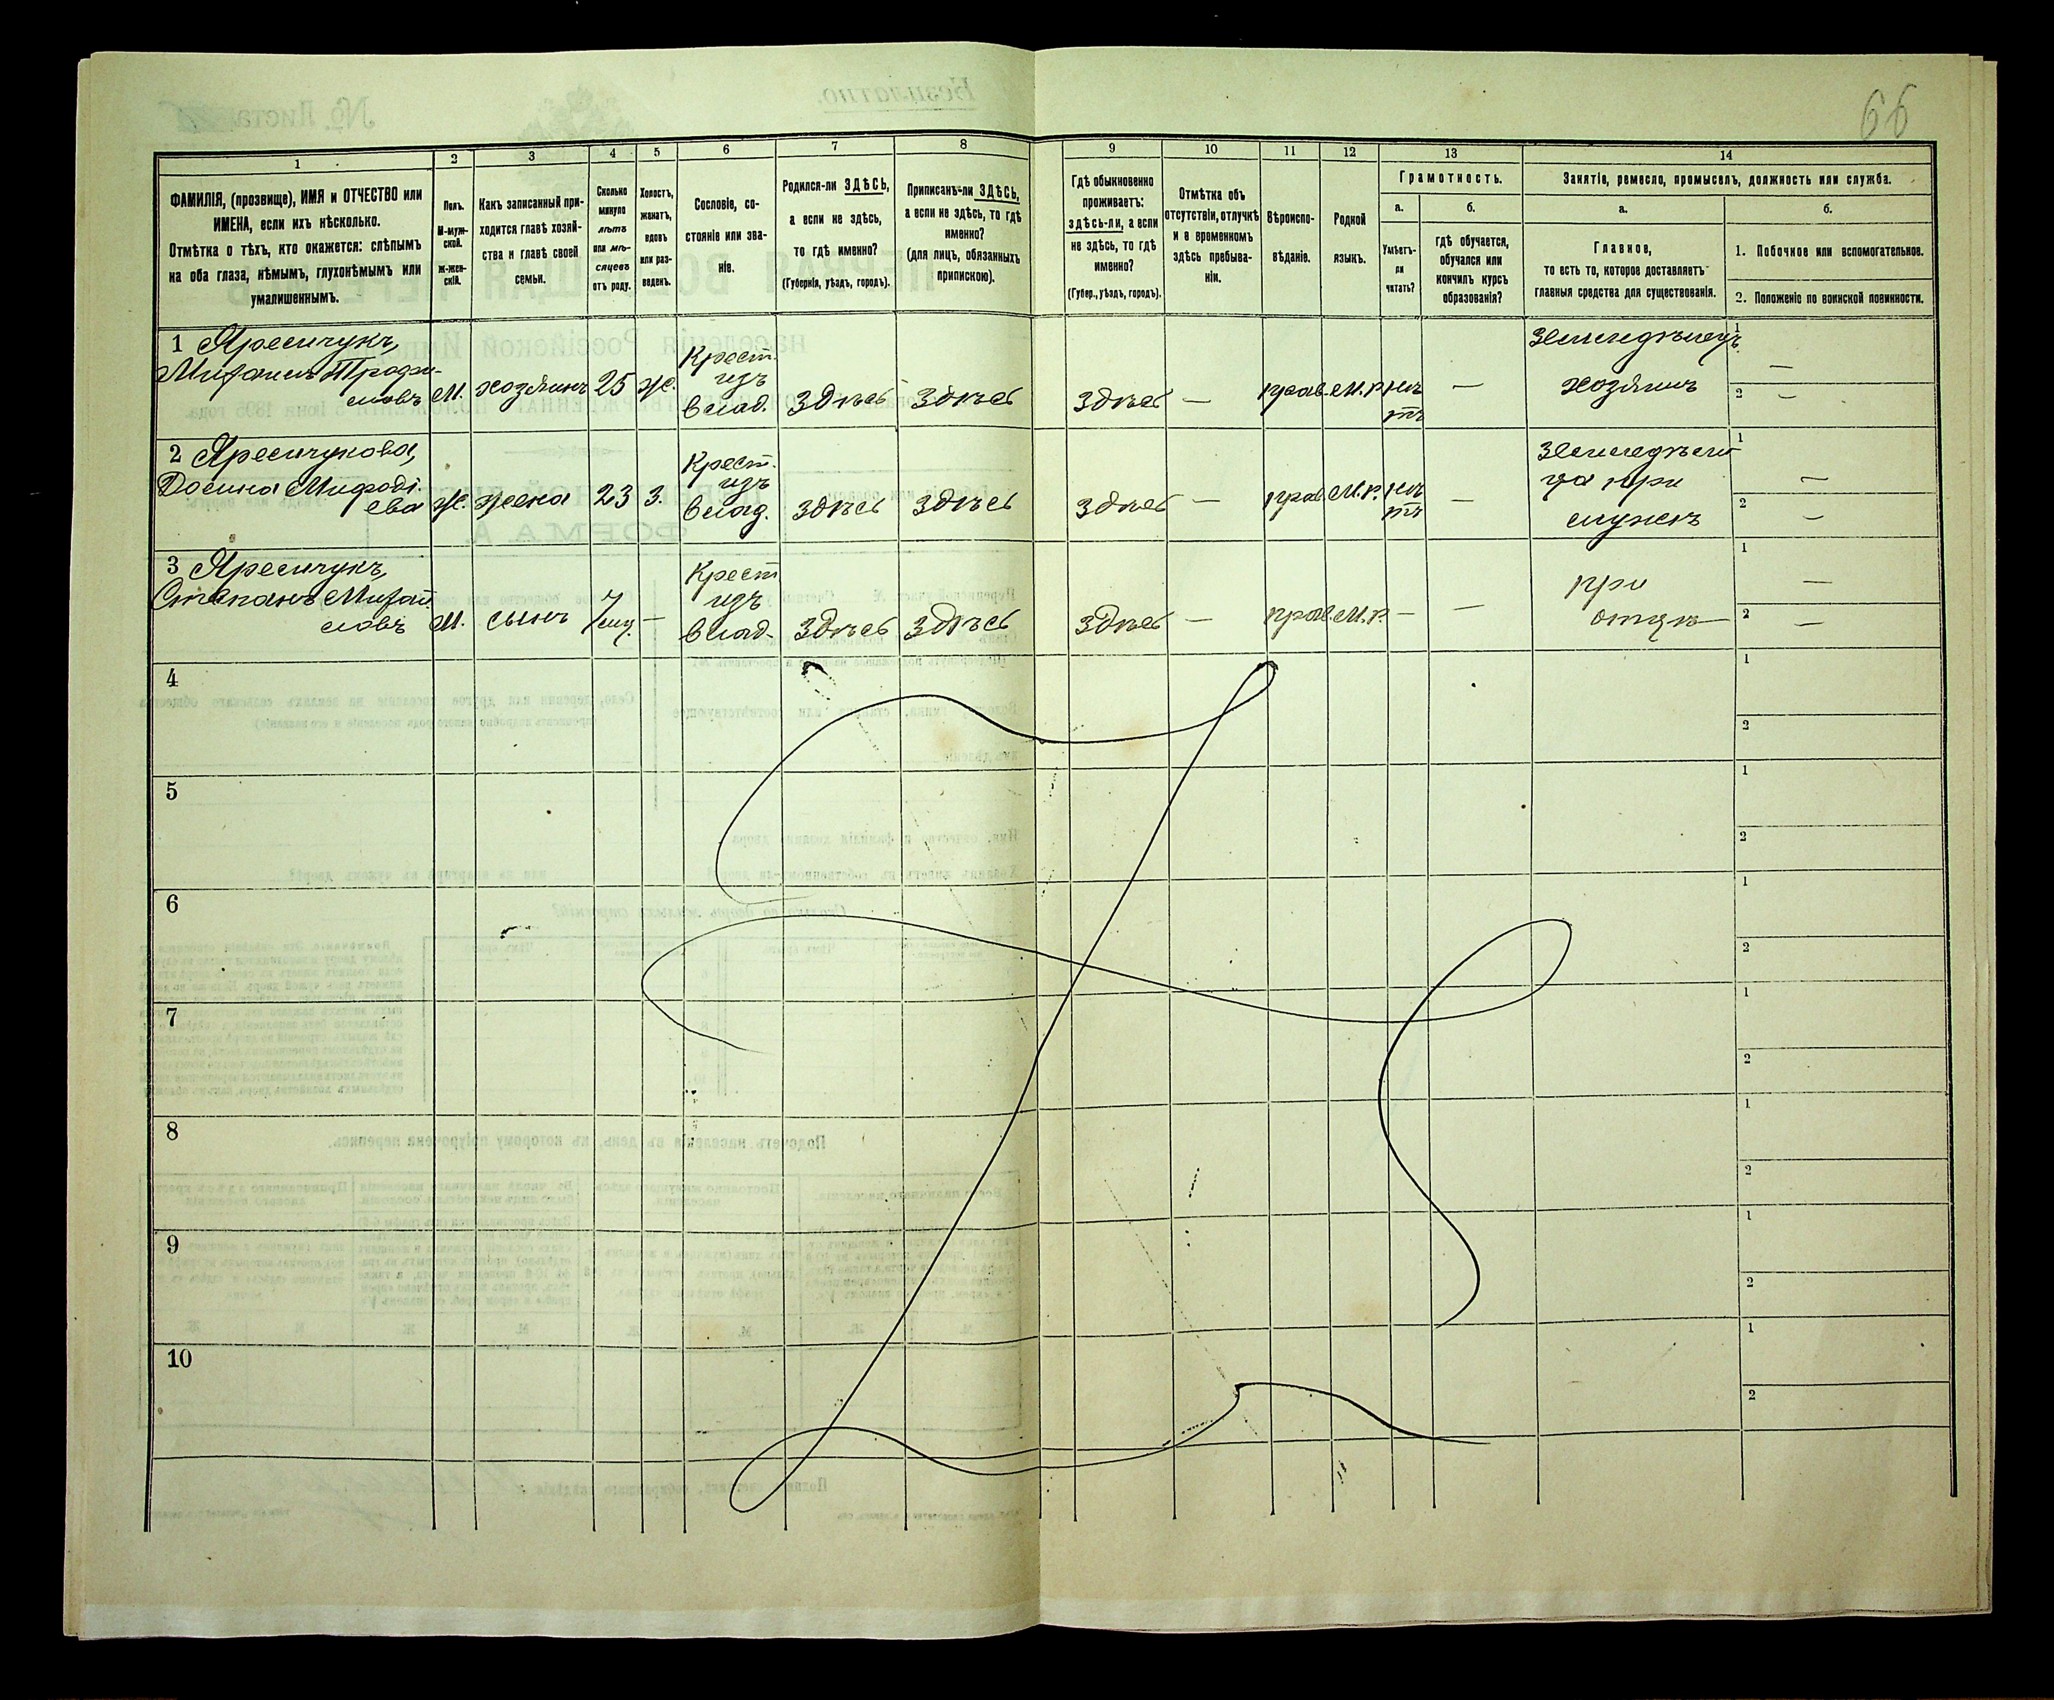 66
1 2 3 4 5 6 7 8 9 10 11 12 13 14
ФАМИЛІЯ, (прозвище), ИМЯ и ОТЧЕСТВО или
ИМЕНА, если ихъ нѣсколько.
Отмѣтка о тѣхъ, кто окажется: слѣпымъ
на оба глаза, нѣмымъ, глухонѣмымъ или
умалишеннымъ.
Полъ.
М-муж-
ской.
Ж-жен-
скій.
Какъ записанный при-
ходится главѣ хозяй-
ства и главѣ своей
семьи.
Сколько
минуло
лѣтъ
или мѣ-
сяцевъ
отъ роду.
Холостъ,
женатъ,
вдовъ
или раз-
веденъ.
Сословіе, со-
стояніе или зва-
ніе.
Родился-ли ЗДѢСЬ,
а если не здѣсь,
то гдѣ именно?
(Губернія, уѣздъ, городъ).
Приписанъ-ли ЗДѢСЬ,
а если не здѣсь, то гдѣ
именно?
(для лицъ, обязанныхъ
припискою).
Гдѣ обыкновенно
проживаетъ:
здѣсь-ли, а если
не здѣсь, то гдѣ
именно?
(Губер., уѣздъ, городъ).
Отмѣтка объ
отсутствіи, отлучкѣ
и о временномъ
здѣсь пребыва-
ніи.
Вѣроиспо-
вѣданіе.
Родной
языкъ.
Грамотность.
а.
Умѣетъ-
ли
читать?
б.
гдѣ обучается,
обучался или
кончилъ курсъ
образованія?
Занятіе, ремесло, промыселъ, должность или служба.
а.
Главное,
то есть то, которое доставляетъ
главныя средства для существованія.
б.
1. Побочное или вспомогательное.
2. Положеніе по воинской повинности.
1 Яресичукъ,
Михаилъ Трофи-
мовъ М. хозяинъ 25 ж. Крест. изъ влад. Здѣсь Здѣсь Здѣсь — прав. М.р. нѣтъ — Земледѣлецъ хозяинъ 1 — 2 —
2 Яресичукова,
Мефоді-
ева Ж. жена 23 З. Крест. изъ влад. Здѣсь Здѣсь Здѣсь — прав. М.р. нѣтъ — при мужѣ 1 — 2 —
3 Яресичукъ,
Степанъ Михай-
ловъ М. сынъ 7 — Крест. изъ влад. Здѣсь Здѣсь Здѣсь — прав. М.р. — — при отцѣ 1 — 2 —
4 1 2
5 1 2
6 1 2
7 1 2
8 1 2
9 1 2
10 1 2